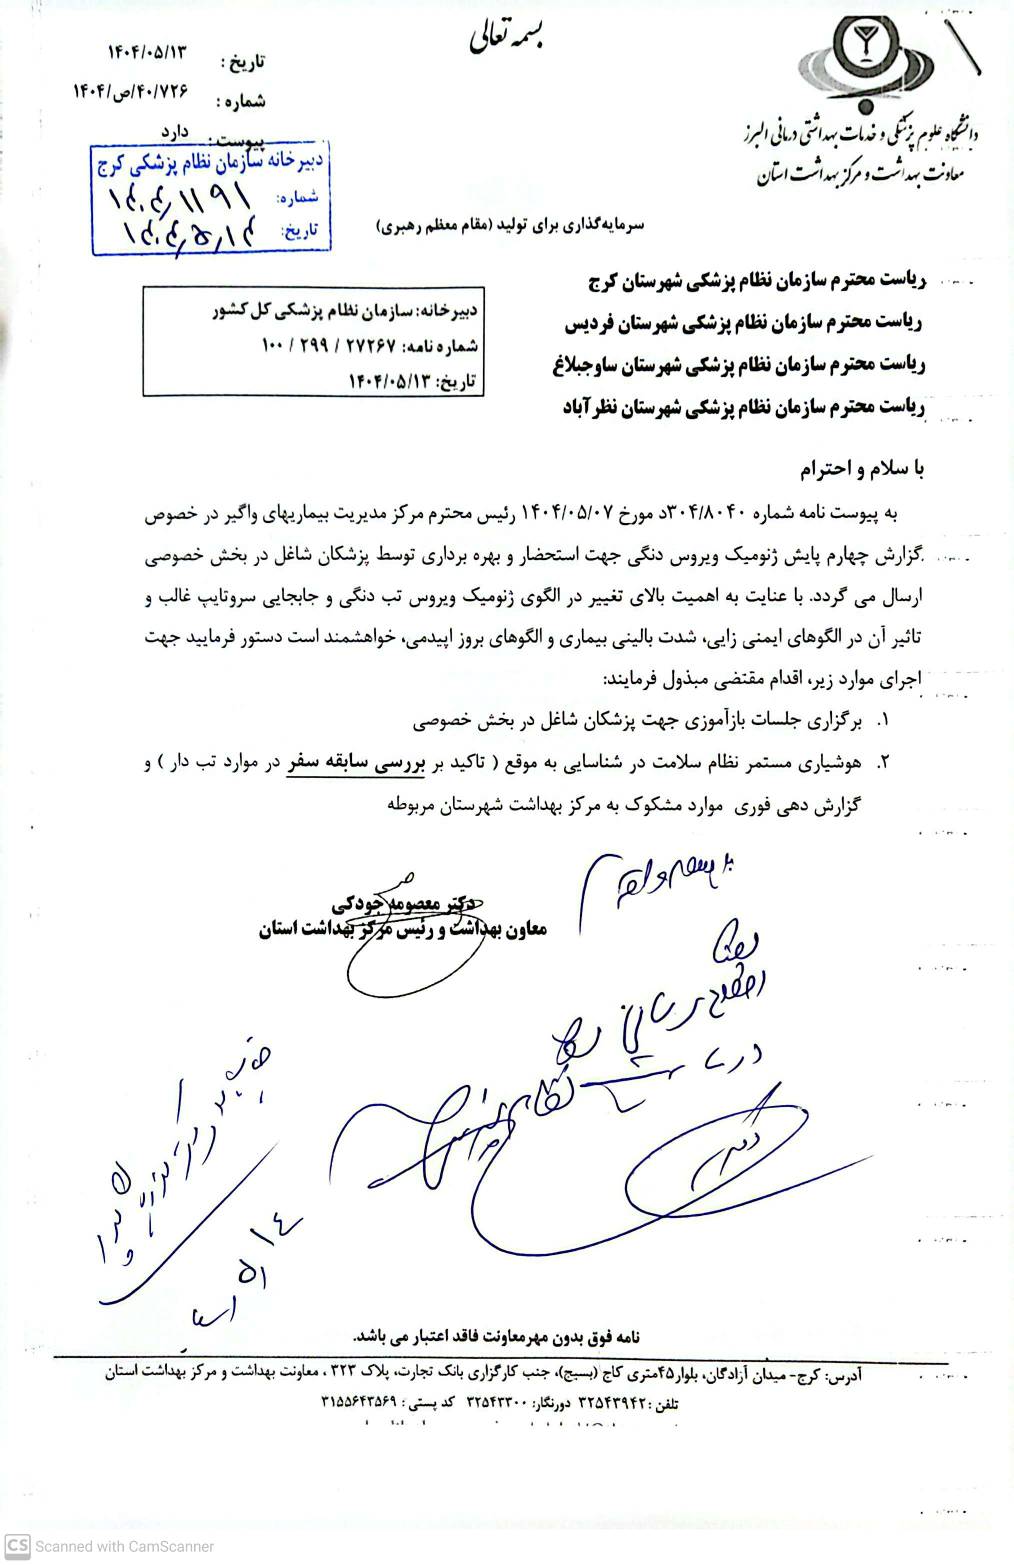 بسمه تعالی
دانشگاه علوم پزشکی و خدمات بهداشتی درمانی البرز
معاونت بهداشت و مرکز بهداشت استان
تاریخ : ۱۴۰۴/۰۵/۱۳
شماره : ۱۴۰۴/ص/۴۰/۷۲۶
پیوست : دارد
دبیرخانه سازمان نظام پزشکی کرج
شماره: ۱۴۰۴/۱۱۹۱
تاریخ: ۱۴۰۴/۵/۱۴
سرمایه‌گذاری برای تولید (مقام معظم رهبری)
ریاست محترم سازمان نظام پزشکی شهرستان کرج
ریاست محترم سازمان نظام پزشکی شهرستان فردیس
ریاست محترم سازمان نظام پزشکی شهرستان ساوجبلاغ
ریاست محترم سازمان نظام پزشکی شهرستان نظرآباد
دبیرخانه: سازمان نظام پزشکی کل کشور
شماره نامه: ۲۷۲۶۷ / ۲۹۹ / ۱۰۰
تاریخ: ۱۴۰۴/۰۵/۱۳
با سلام و احترام
به پیوست نامه شماره ۳۰۴/۸۰۴۰د مورخ ۱۴۰۴/۰۵/۰۷ رئیس محترم مرکز مدیریت بیماریهای واگیر در خصوص
گزارش چهارم پایش ژنومیک ویروس دنگی جهت استحضار و بهره برداری توسط پزشکان شاغل در بخش خصوصی
ارسال می گردد. با عنایت به اهمیت بالای تغییر در الگوی ژنومیک ویروس تب دنگی و جابجایی سروتایپ غالب و
تاثیر آن در الگوهای ایمنی زایی، شدت بالینی بیماری و الگوهای بروز اپیدمی، خواهشمند است دستور فرمایید جهت
اجرای موارد زیر، اقدام مقتضی مبذول فرمایند:
۱. برگزاری جلسات بازآموزی جهت پزشکان شاغل در بخش خصوصی
۲. هوشیاری مستمر نظام سلامت در شناسایی به موقع ( تاکید بر بررسی سابقه سفر در موارد تب دار ) و
گزارش دهی فوری موارد مشکوک به مرکز بهداشت شهرستان مربوطه
دکتر معصومه جودکی
معاون بهداشت و رئیس مرکز بهداشت استان
لطفا
اطلاع رسانی
در سایت نظام پزشکی
۵/۱۴
نامه فوق بدون مهرمعاونت فاقد اعتبار می باشد.
آدرس: کرج- میدان آزادگان، بلوار۴۵متری کاج (بسیج)، جنب کارگزاری بانک تجارت، پلاک ۳۲۳ ، معاونت بهداشت و مرکز بهداشت استان
تلفن : ۳۲۵۴۳۹۴۲ دورنگار: ۳۲۵۴۳۳۰۰ کد پستی : ۳۱۵۵۶۴۳۵۶۹
CS Scanned with CamScanner